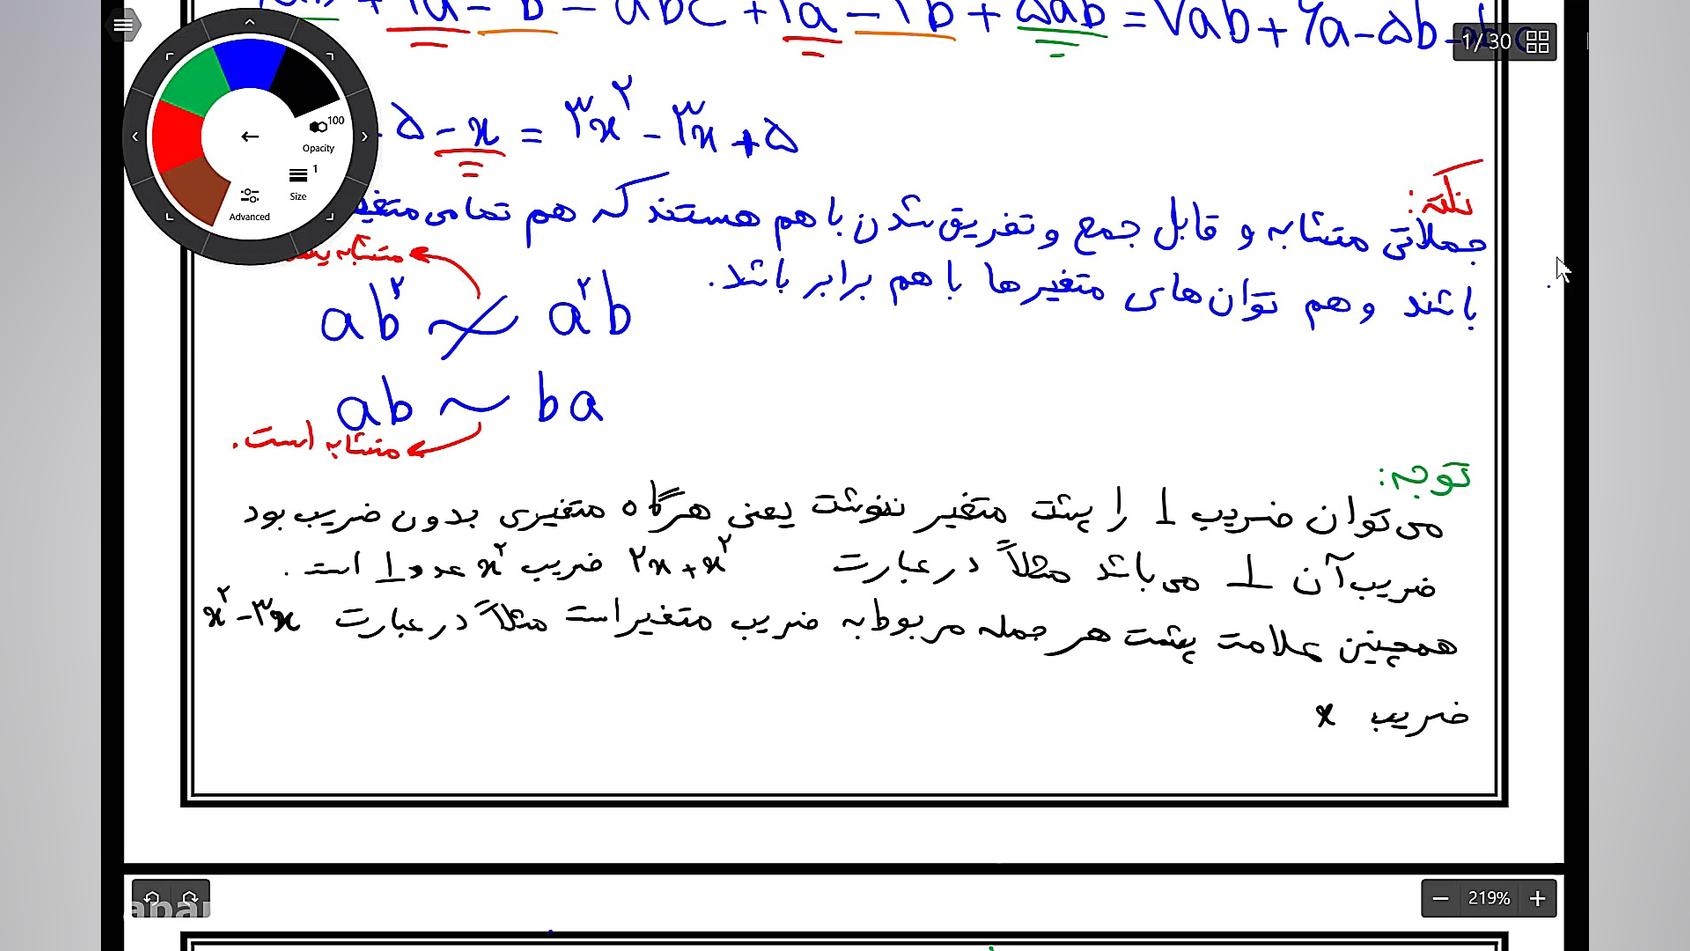 + ۲a − b − abc + ۲a − ۲b + ۵ab = ۷ab + ۴a − ۵b −
1/30
۵ − x = ۳x² − ۳x + ۵
100
Opacity
1
Size
Advanced
نکته:
جملاتی متشابه و قابل جمع و تفریق شدن با هم هستند که هم تمامی
باشند و هم توان‌های متغیرها با هم برابر باشد.
متشابه
ab² ≁ a²b
ab ~ ba
متشابه است.
توجه:
می‌توان ضریب 1 را پشت متغیر ننوشت یعنی هرگاه متغیری بدون ضریب بود
ضریب آن 1 می‌باشد مثلاً در عبارت ۲x + x² ضریب x² عدد 1 است.
همچنین علامت پشت هر جمله مربوط به ضریب متغیر است مثلاً در عبارت x² − ۳x
ضریب x
219%